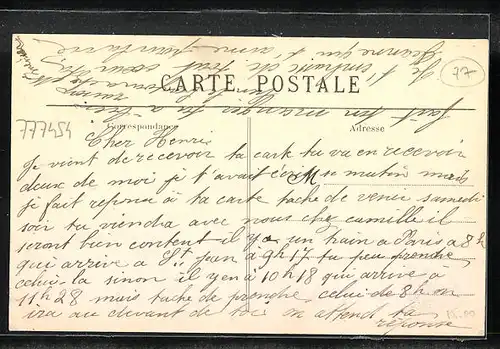 CARTE POSTALE
Correspondance
Adresse
77
777454
Cher Henri
Je vient de recevoir ta carte tu va en recevoir
deux de moi je t'avait écris se matin mais
je fait reponse à ta carte tache de venir samedi
soir tu viendra avec nous chez camille il
seront bien content il y a un train a Paris a 8h
qui arrive a St Jean a 9h17 tu peu prendre
celui la sinon il yen à 10h18 qui arrive a
11h28 mais tache de prendre celui de 8h on
ira au devant de toi on attend ta
réponse
Je t'embrasse de tout cœur
Jeanne qui t'aime